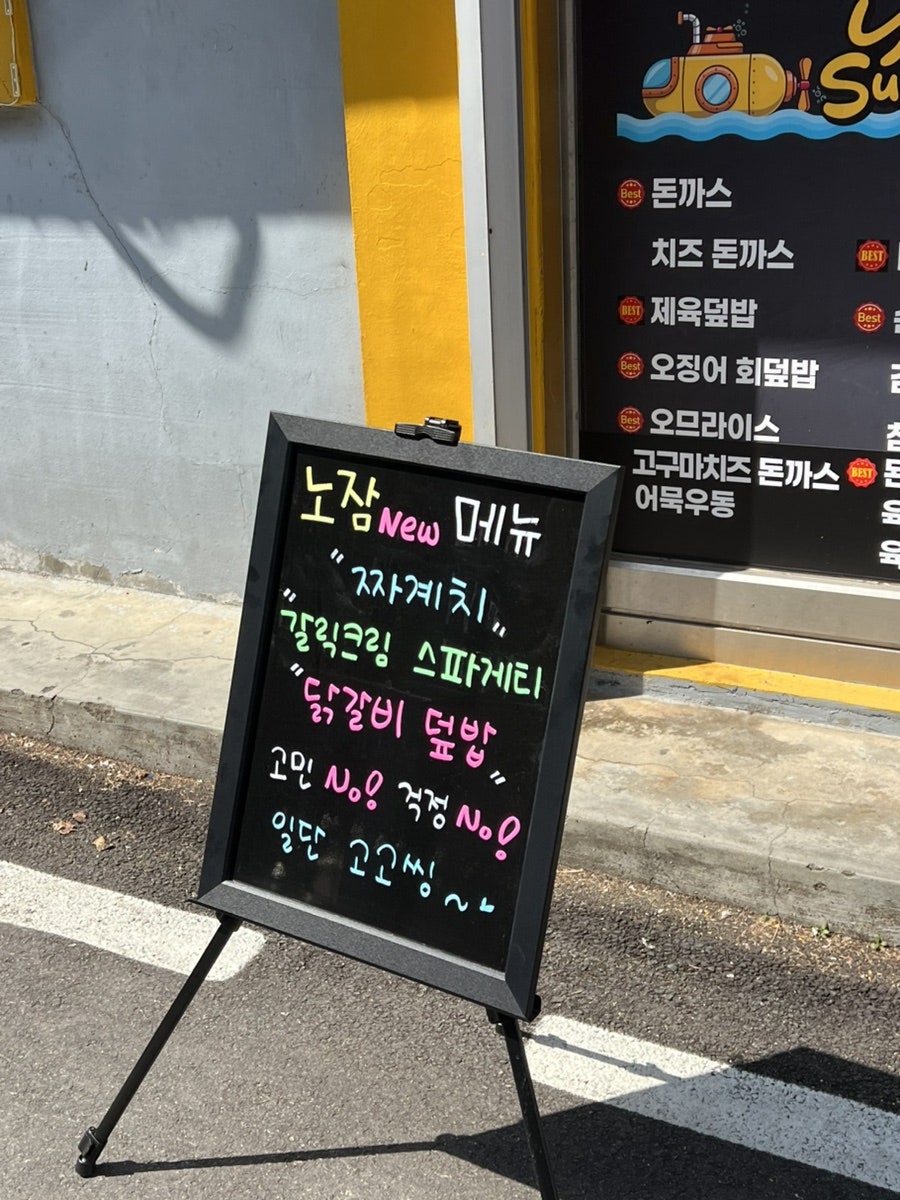 Best 돈까스
치즈 돈까스
BEST
BEST 제육덮밥
Best
Best 오징어 회덮밥
Best 오므라이스
고구마치즈 돈까스
BEST
어묵우동
노잠 New 메뉴
"짜계치"
"갈릭크림 스파게티
"닭갈비 덮밥"
고민 No! 걱정 No!
일단 고고씽~